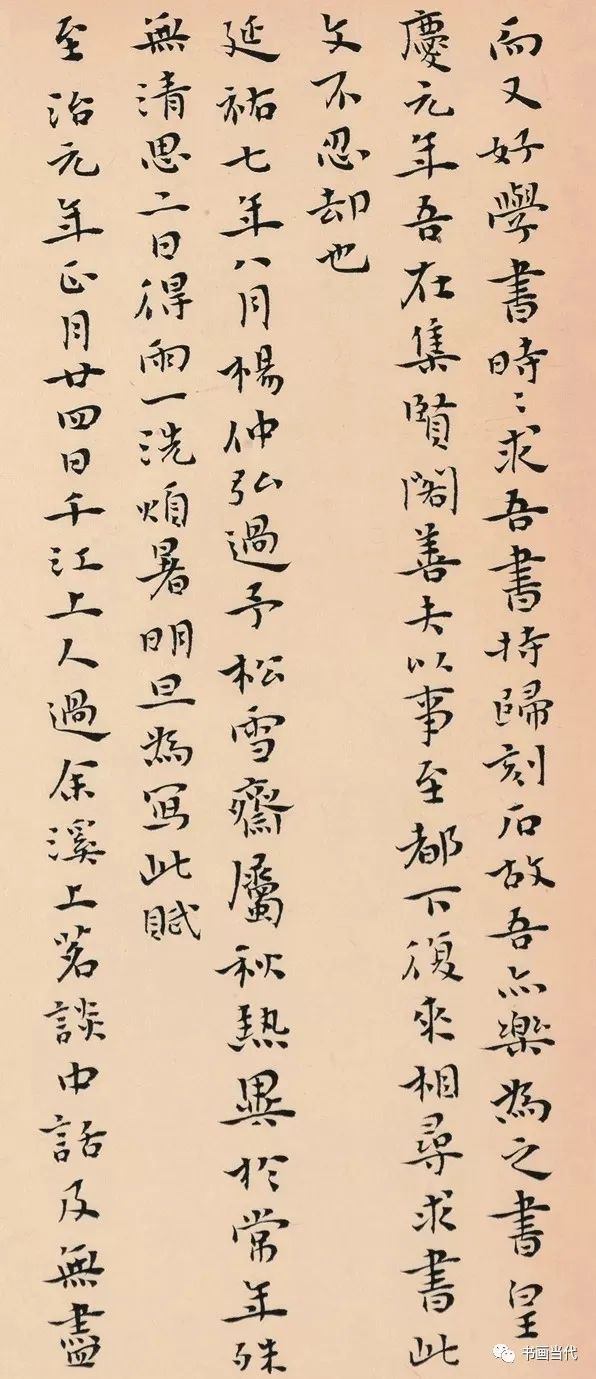 而又好學書時〻求吾書持歸刻石故吾亦樂為之書皇
慶元年吾在集賢閣善夫以事至都下復來相尋求書此
文不忍却也
延祐七年八月楊仲弘過予松雪齋屬秋熱異於常年殊
無清思二日得雨一洗煩暑明旦為寫此賦
至治元年正月廿四日千江上人過余溪上茗談中話及無盡
书画当代